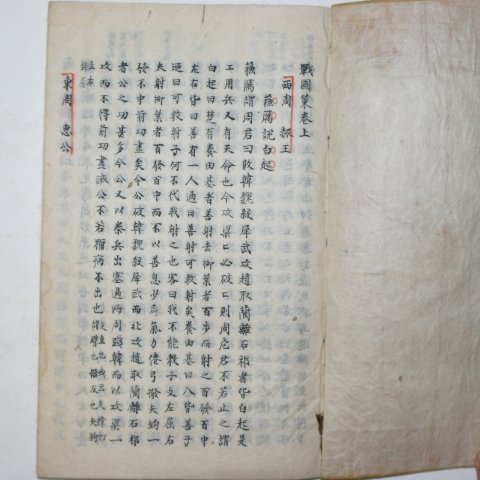 戰國策卷上
西周 赧王
蘇厲說白起
蘇厲謂周君曰敗韓魏殺犀武攻趙取藺離石祁者皆白起是
工用兵又有天命也今攻梁〻必破〻則周危君不若止之謂
白起曰楚有養由基者善射去柳葉者百步而射之百發百中
左右皆曰善有一人過曰善射可教射矣養由基曰人皆善子
迺曰可教射子何不代我射之也客曰我不能教子支左屈右
夫射柳葉者百發百中而不以善息少焉氣力倦弓撥矢鉤一
發不中前功盡矣今公破韓魏殺犀武而北攻趙取藺離石祁
者公之功甚多今公又以秦兵出塞過兩周踐韓而以攻梁一
攻而不得前功盡滅公不若稱病不出也
左右
東周 惠公